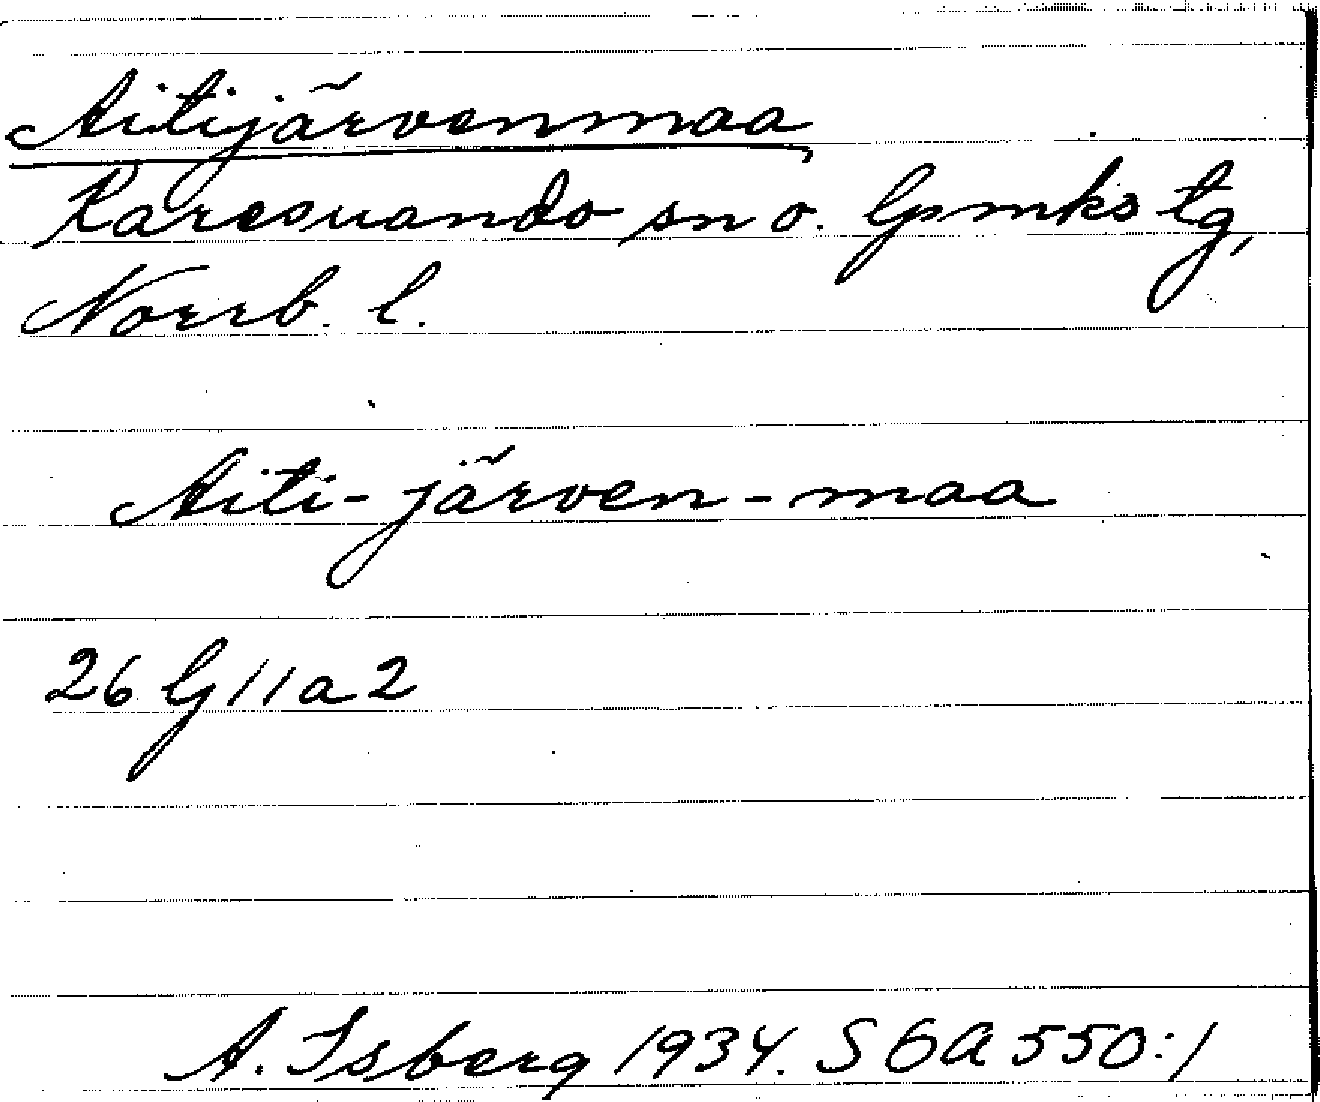 Aitijärvenmaa
Karesuando sn o. lpmks tg,
Norrb. l.
Aiti-järven-maa
26 G 11 a 2
A. Isberg 1934. S 6A 550:1